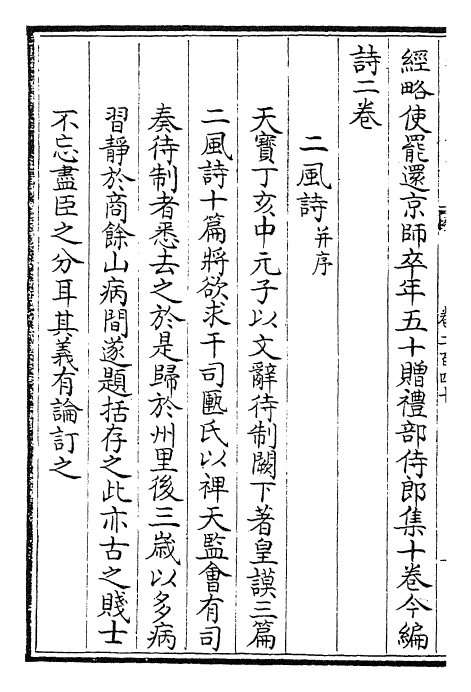 經略使罷還京師卒年五十贈禮部侍郎集十卷今編
詩二卷
二風詩并序
天寶丁亥中元子以文辭待制闕下著皇謨三篇
二風詩十篇將欲求干司匭氏以裨天監會有司
奏待制者悉去之於是歸於州里後三歳以多病
習靜於商餘山病間遂題括存之此亦古之賤士
不忘盡臣之分耳其義有論訂之